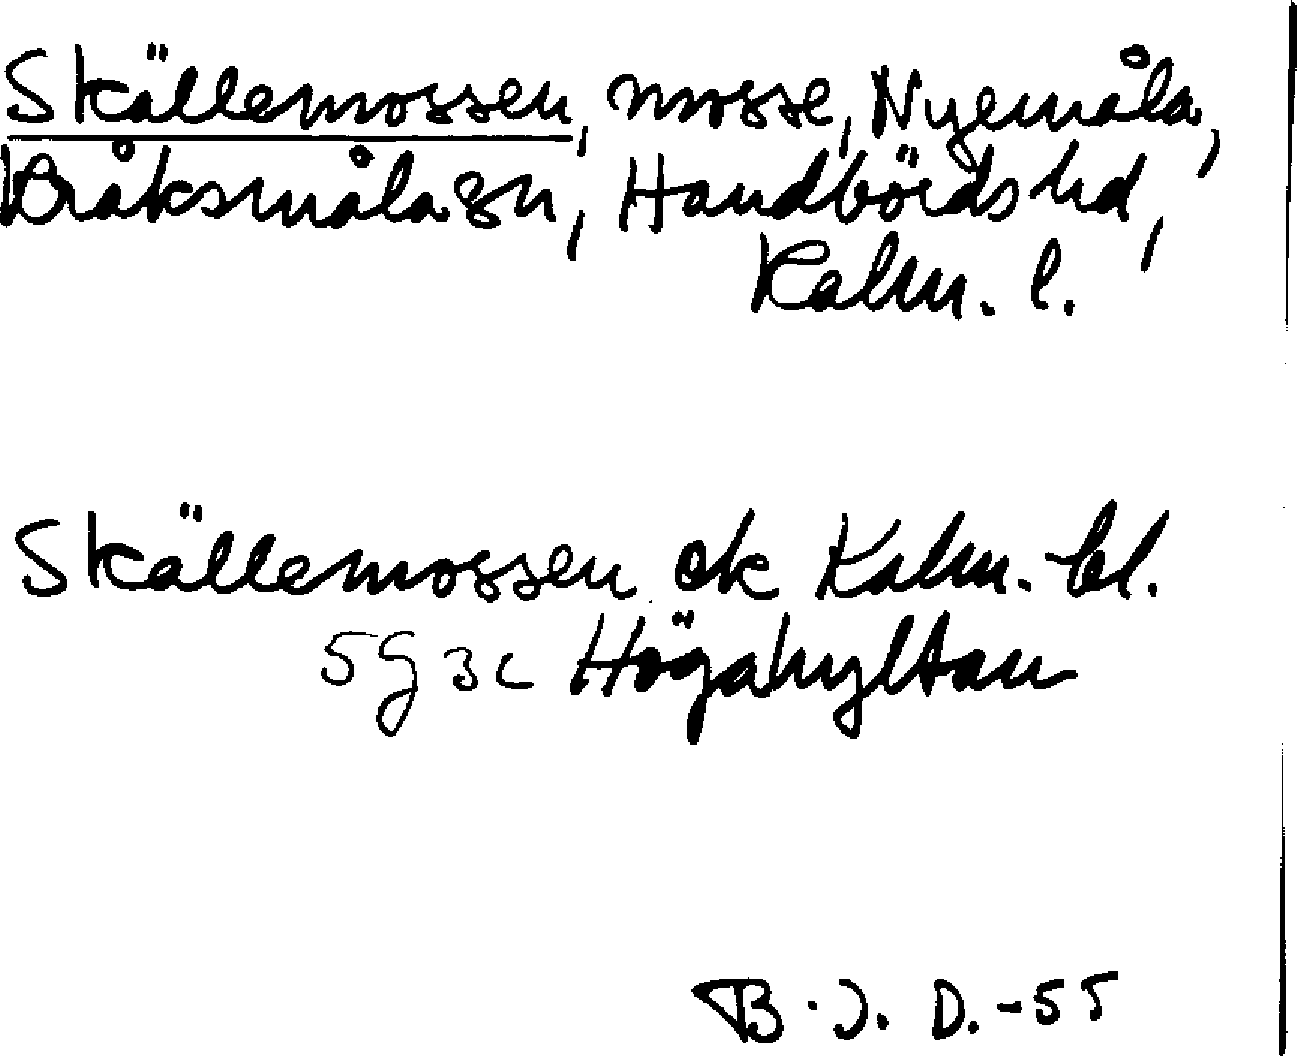 Skällemossen, mosse, Nyemåla,
Bråksmåla sn, Handbörds hd,
Kalm. l.
Skällemossen ek Kalm. bl.
5G 3c Högahyltan
B.J. D.-55